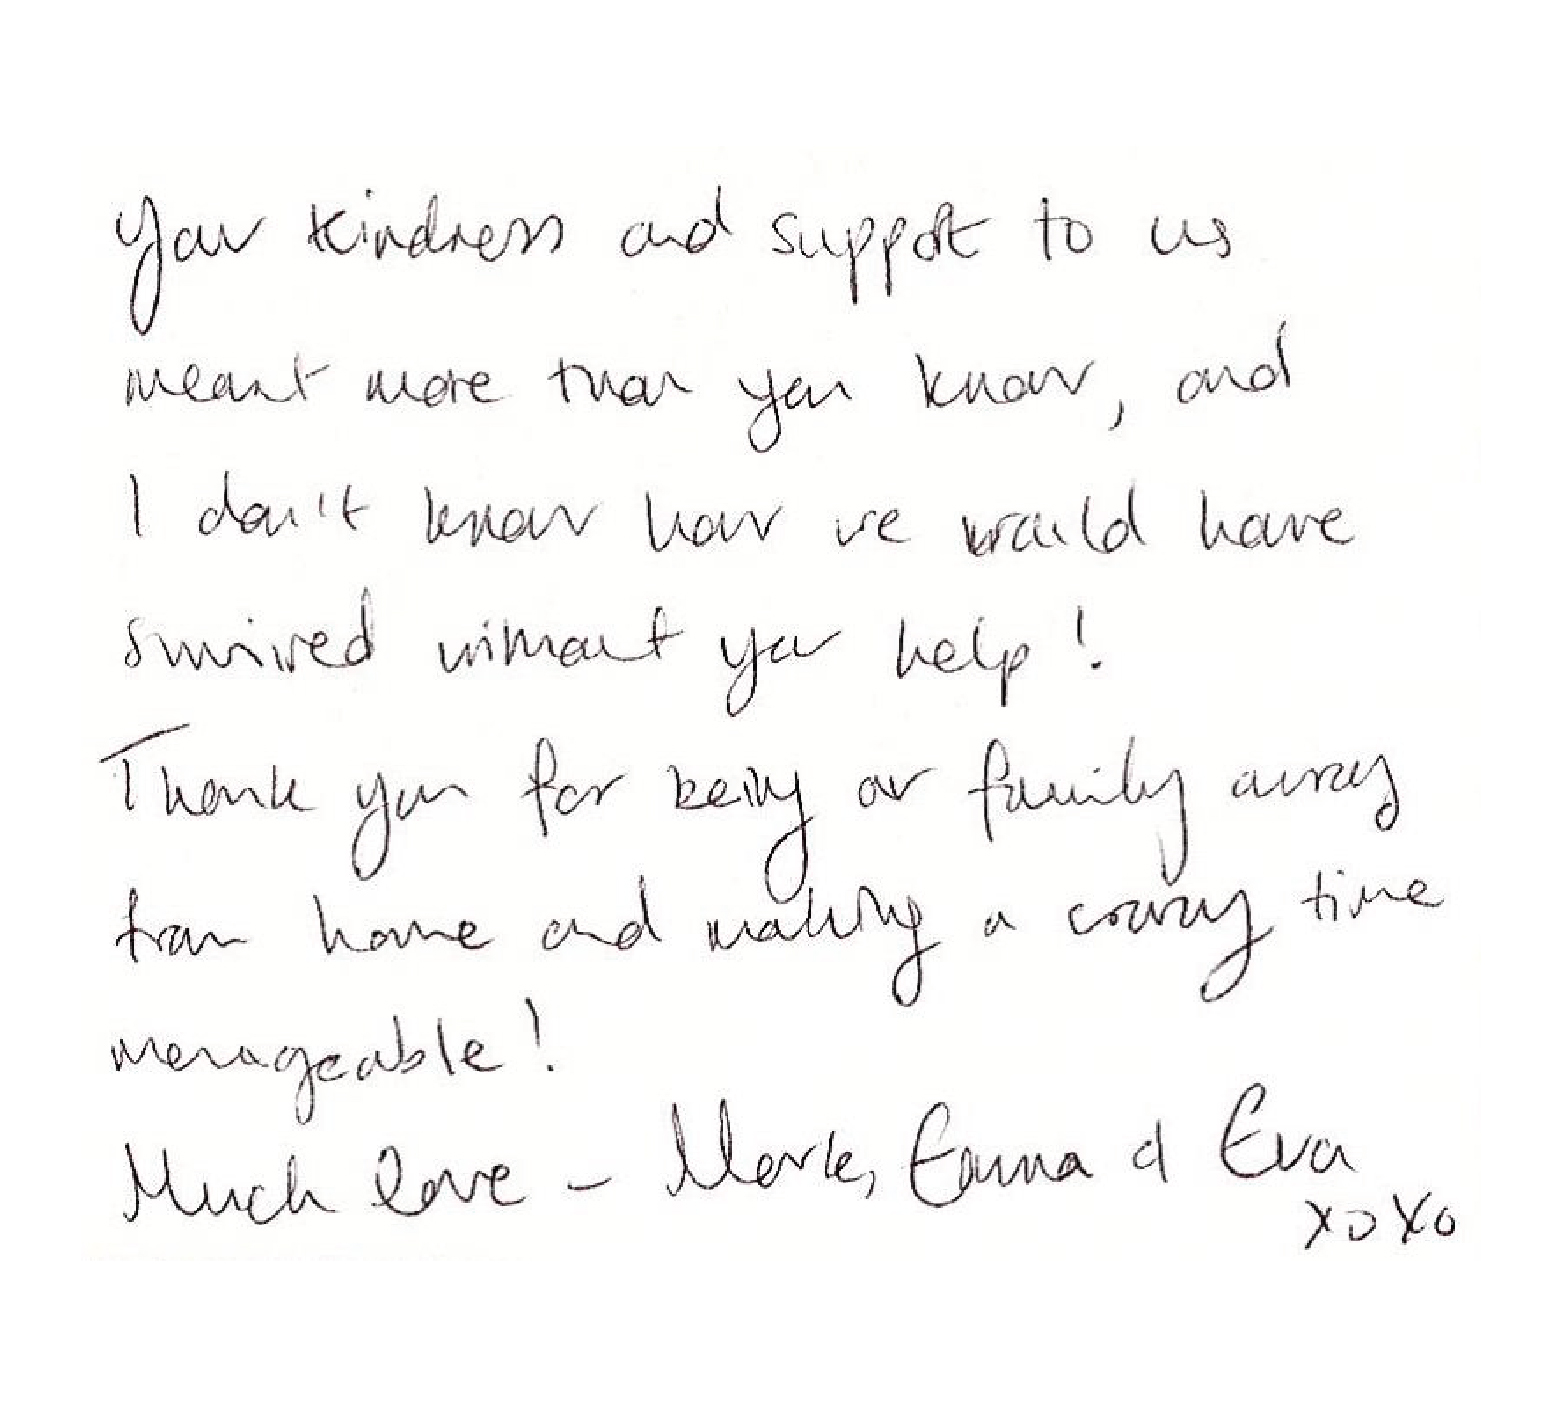 Your kindness and support to us
meant more than you know, and
I don't know how we would have
survived without your help!
Thank you for being our family away
from home and making a crazy time
manageable!
Much love - Mark, Emma & Eva
xoxo